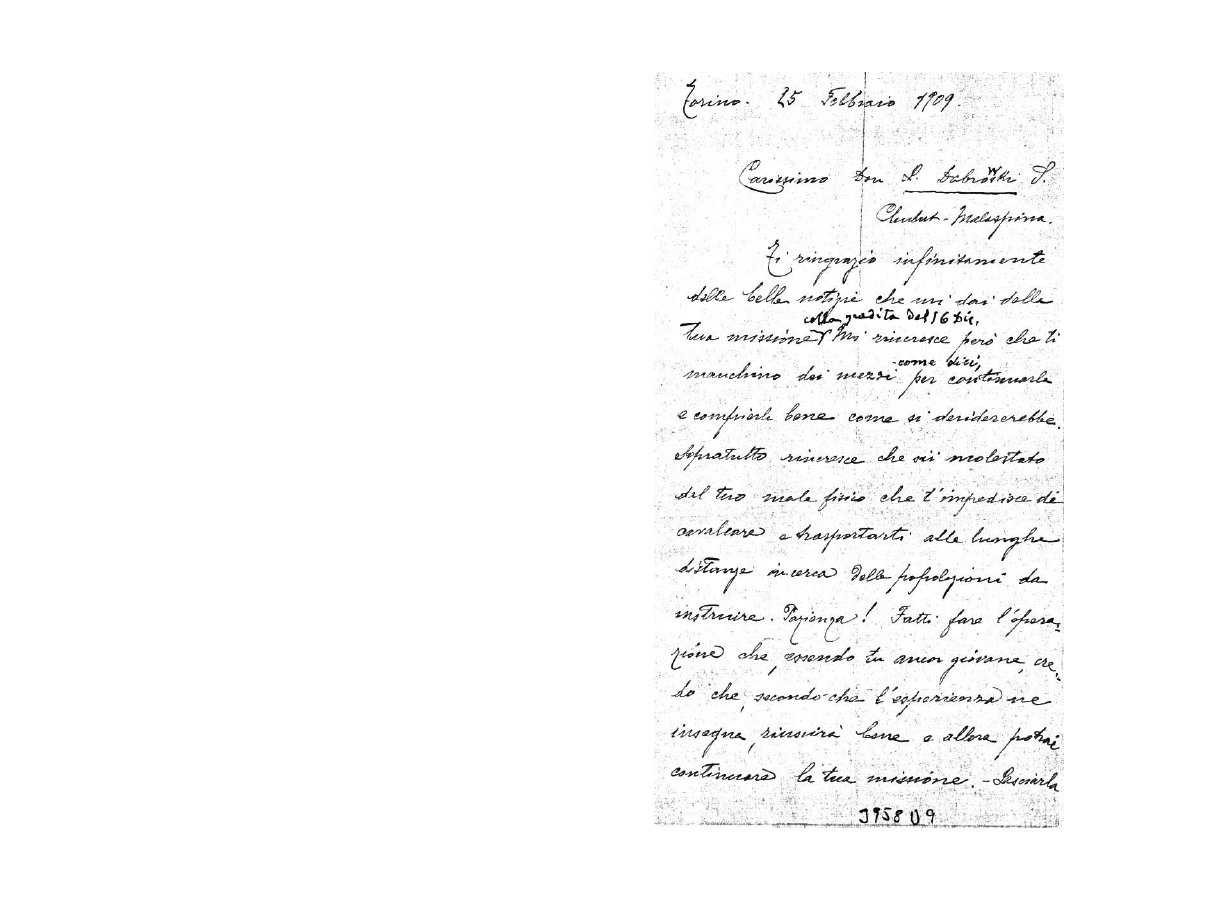 Torino. 25 Febbraio 1909.
Carissimo Don L. Dabrowski S.
Chubut - Malaspina.
Ti ringrazio infinitamente
delle belle notizie che mi dai della
colla gradita del 16 Dic.
tua missione. Mi rincresce però che ti
come dici,
manchino dei mezzi per continuarla
e compierla bene come si desidererebbe.
Sopratutto rincresce che sii molestato
dal tuo male fisico che t'impedisce di
cavalcare e trasportarti alle lunghe
distanze in cerca delle popolazioni da
instruire. Pazienza! Fatti fare l'opera-
zione che, essendo tu ancor giovane, cre-
do che, secondo che l'esperienza ne
insegna, riuscirà bene e allora potrai
continuare la tua missione. - Lasciarla
3958 U 9